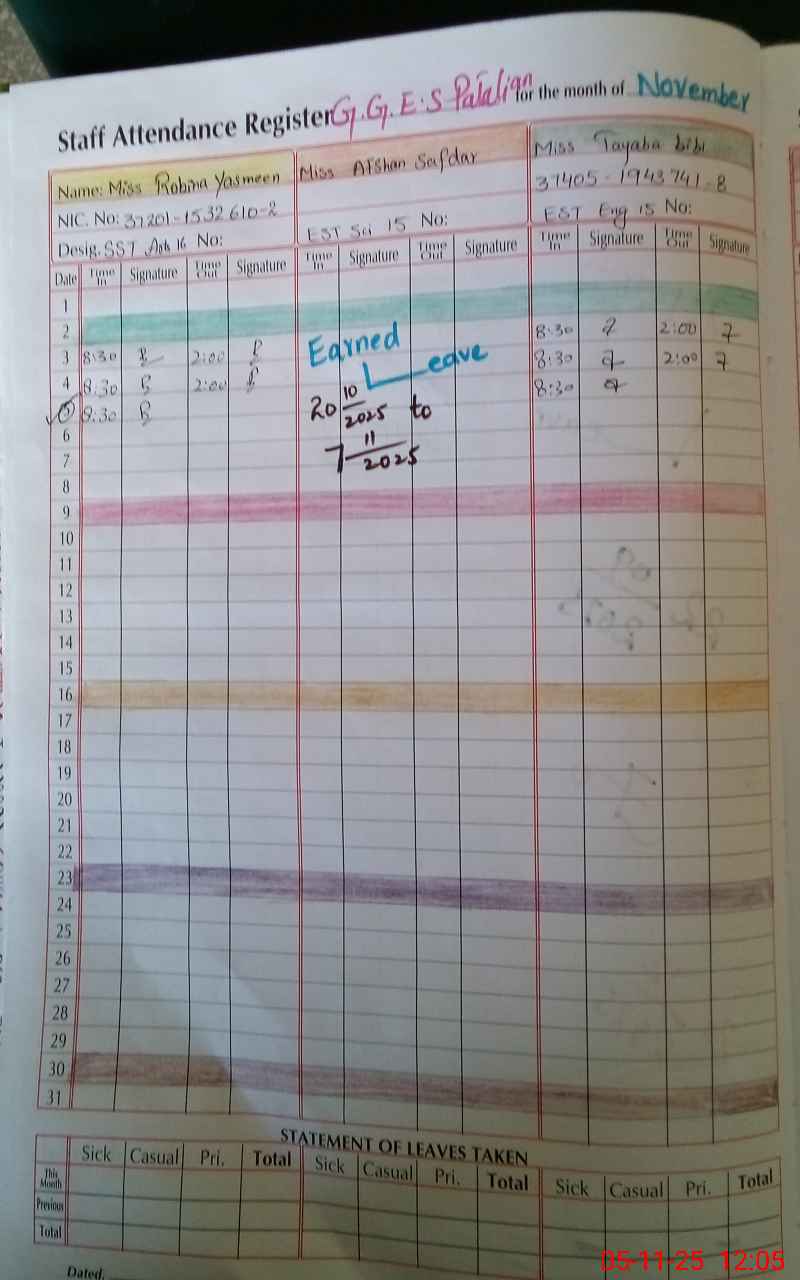 Staff Attendance Register G.G.E.S Patalian for the month of November
Name: Miss Robina Yasmeen Miss Afshan Safdar Miss Tayaba bibi
NIC. No: 37201-1532610-2 37405-1943741-8
Desig. SST 16 No: EST Sci 15 No: EST Eng 15 No:
Date Time In Signature Time Out Signature Time In Signature Time Out Signature Time In Signature Time Out Signature
1
2
3 8:30 2:00 Earned 8:30 2:00
4 8:30 2:00 Leave 8:30 2:00
5 8:30 20 10/2025 to 8:30
6
7 7 11/2025
8
9
10
11
12
13
14
15
16
17
18
19
20
21
22
23
24
25
26
27
28
29
30
31
STATEMENT OF LEAVES TAKEN
Sick Casual Pri. Total Sick Casual Pri. Total Sick Casual Pri. Total
This Month
Previous
Total
Dated.
05-11-25 12:05